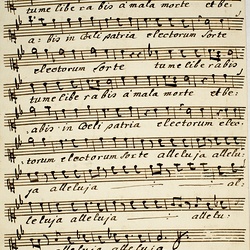 tume libe rabis a mala morte et be:
a: bis in Cœli patria electorum Sorte
electorum Sorte tume libe rabis
tume libe rabis a mala morte et be:
:abis in Cœli patria electorum elec:
:torum electorum Sorte alleluja allelu:
ja alleluja al:
leluja alleluja allelu:
alleluja alleluja